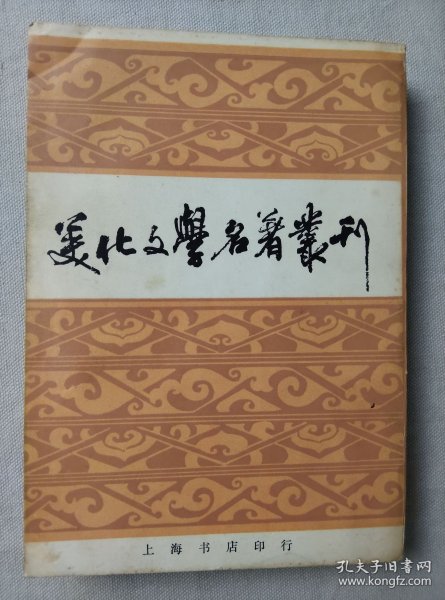 美化文學名著叢刊
上海书店印行
孔夫子旧书网
www.kongfz.com